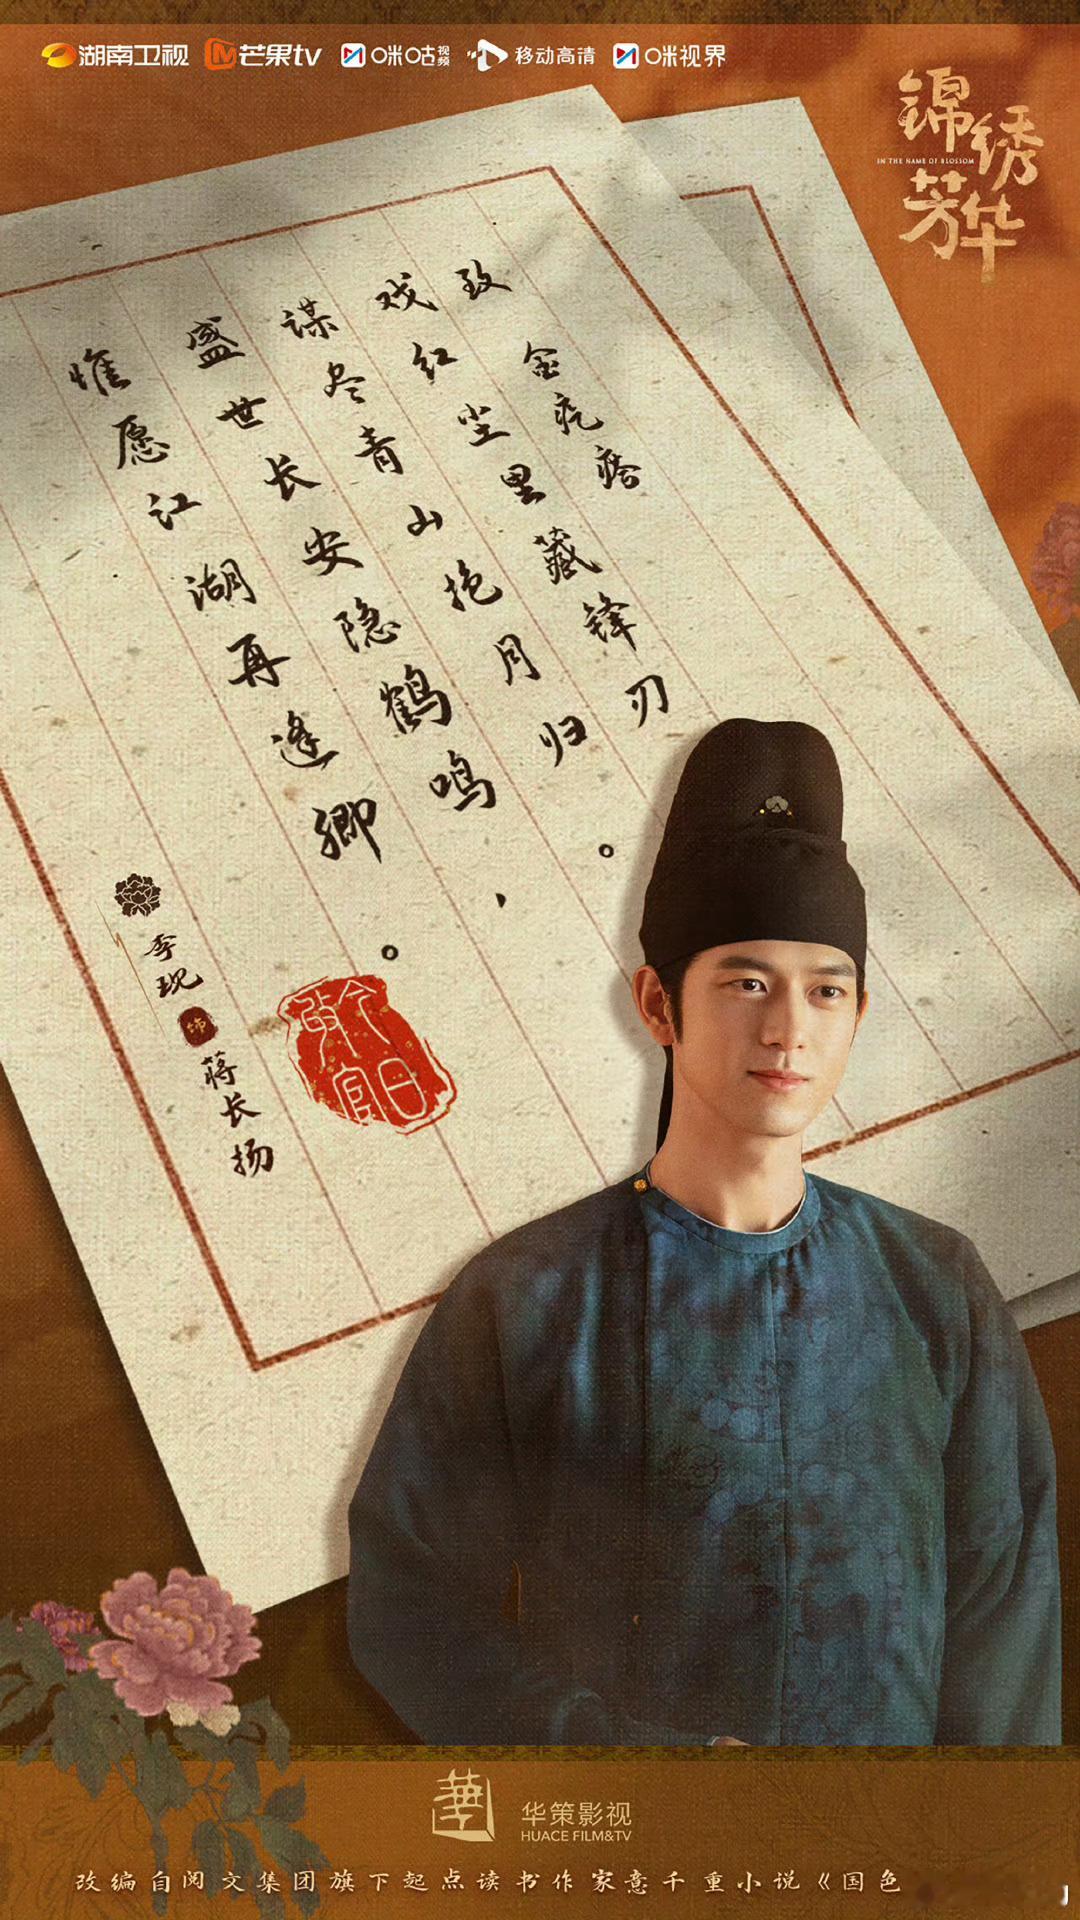 湖南卫视 芒果tv 咪咕视频 移动高清 咪视界
锦绣芳华
IN THE NAME OF BLOSSOM
致金疙瘩
戏红尘里藏锋刃
谋尽青山抱月归。
盛世长安隐鹤鸣、
惟愿江湖再逢卿。
李现 饰 蒋长扬
今日
敢官
华策影视
HUACE FILM&TV
改编自阅文集团旗下起点读书作家意千重小说《国色